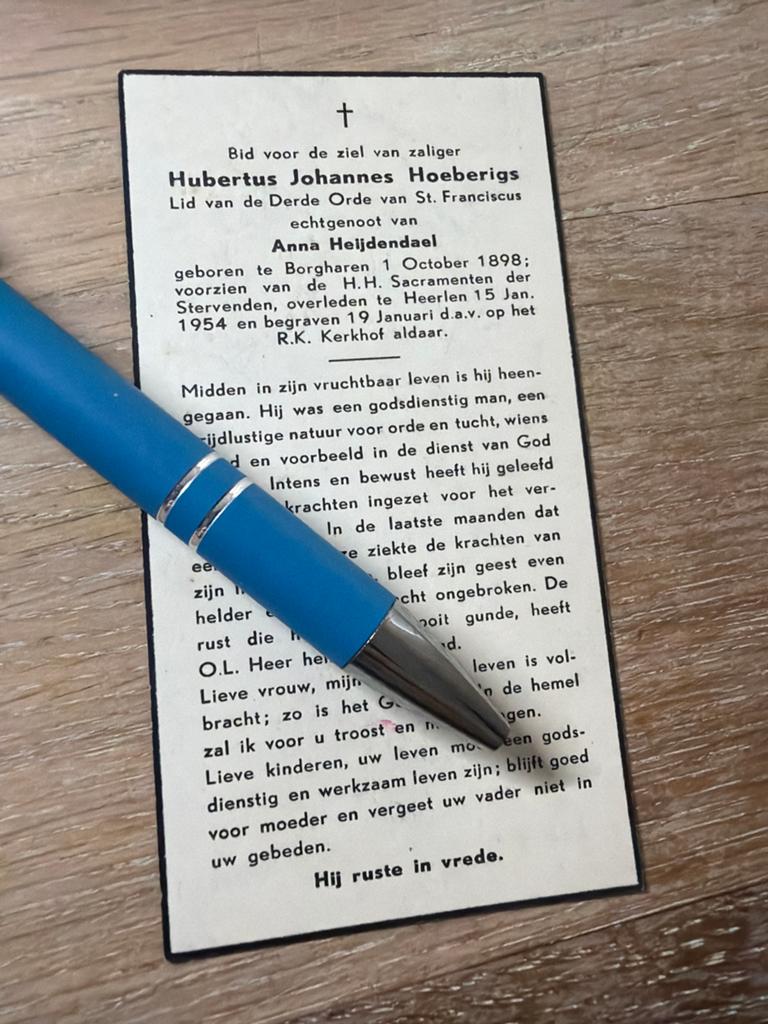 Bid voor de ziel van zaliger
Hubertus Johannes Hoeberigs
Lid van de Derde Orde van St. Franciscus
echtgenoot van
Anna Heijdendael
geboren te Borgharen 1 October 1898;
voorzien van de H.H. Sacramenten der
Stervenden, overleden te Heerlen 15 Jan.
1954 en begraven 19 Januari d.a.v. op het
R.K. Kerkhof aldaar.
Midden in zijn vruchtbaar leven is hij heen-
gegaan. Hij was een godsdienstig man, een
natuur voor orde en tucht, wiens
en voorbeeld in de dienst van God
Intens en bewust heeft hij geleefd
krachten ingezet voor het ver-
In de laatste maanden dat
ziekte de krachten van
zijn bleef zijn geest even
helder ongebroken. De
rust die gunde, heeft
O.L. Heer
Lieve vrouw, mijn leven is vol-
bracht; zo is het de hemel
zal ik voor u troost en
Lieve kinderen, uw leven een gods-
dienstig en werkzaam leven zijn; blijft goed
voor moeder en vergeet uw vader niet in
uw gebeden.
Hij ruste in vrede.